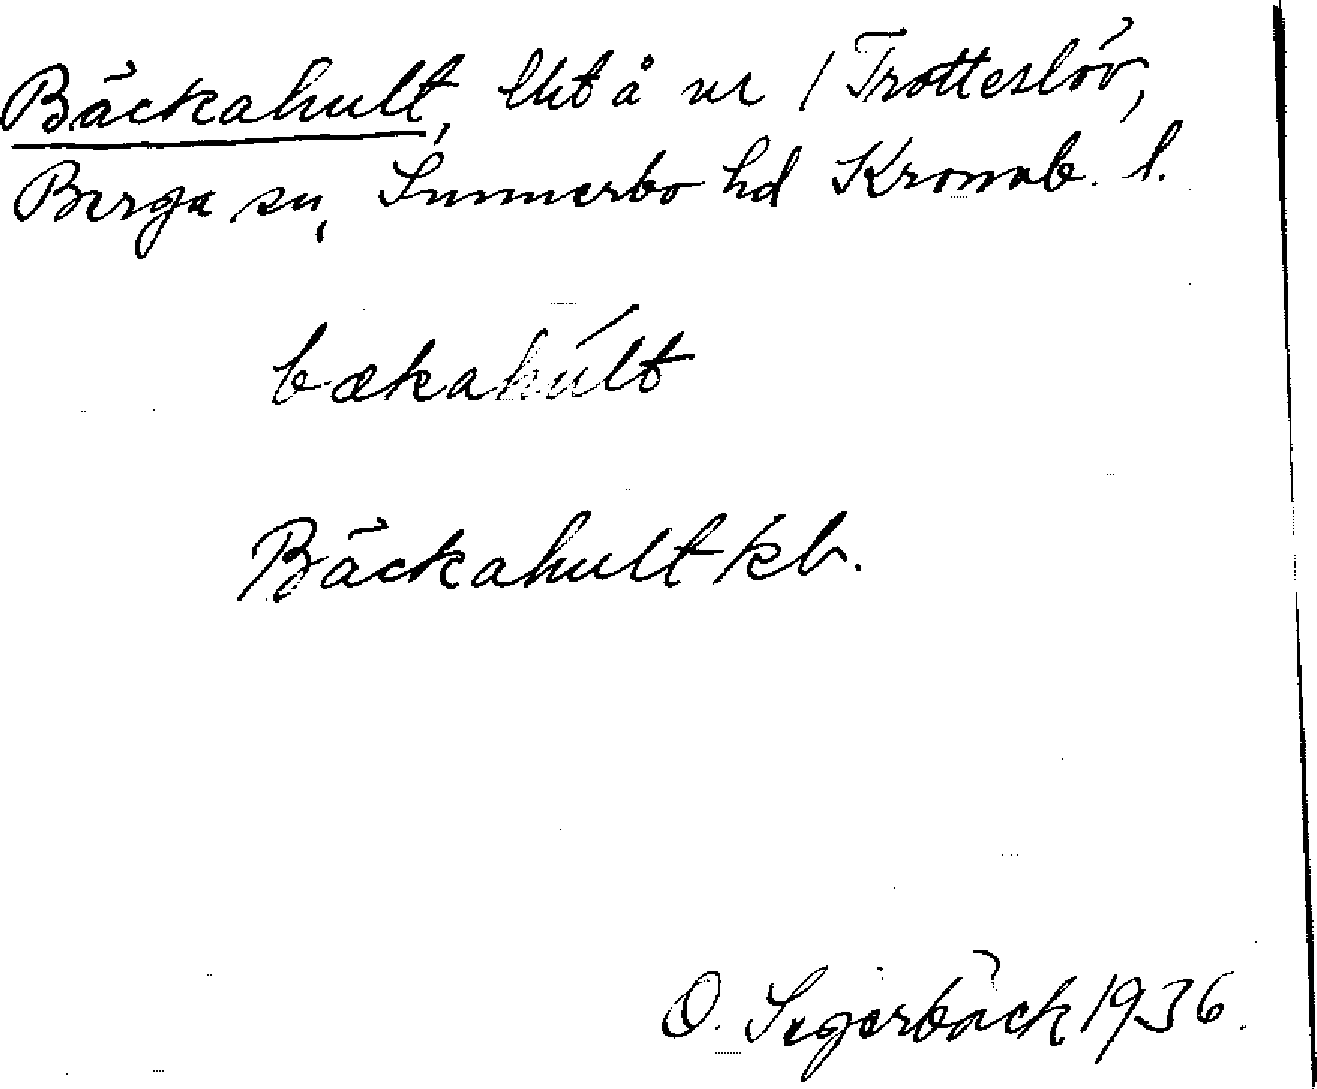 Bäckahult, lht å nr 1 Trotteslöv,
Berga sn, Sunnerbo hd Kronob. l.
bækahúlt
Bäckahult kb.
O. Segerbäck 1936.